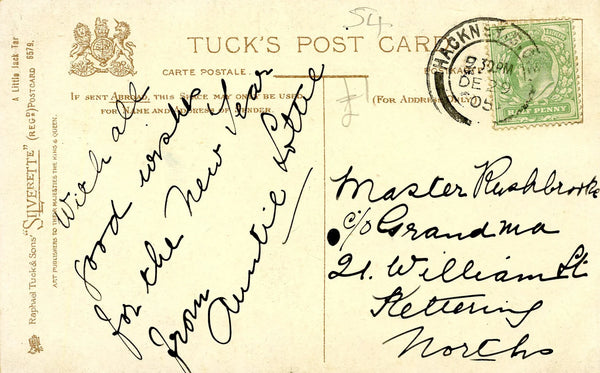 A Little Jack Tar
Raphael Tuck & Sons' "SILVERETTE" (REGD) POSTCARD 6579.
ART PUBLISHERS TO THEIR MAJESTIES THE KING & QUEEN.
TUCK'S POST CARD
CARTE POSTALE
IF SENT ABROAD, THIS SPACE MAY ONLY BE USED
FOR NAME AND ADDRESS OF SENDER.
(FOR ADDRESS ONLY
54
£1
HACKNEY
DE 29
05
PENNY
With all
good wishes
for the New Year
from
Auntie Lottie
Master Rushbrooke
c/o Grandma
21. William St
Kettering
Norths